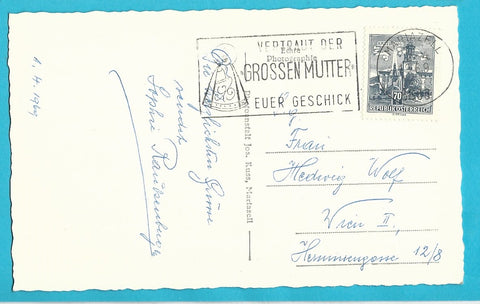 1. 4. 1969
Die herzlichsten Grüße
sendet
Sophie
Echte
Photographie
Postkartenanstalt Jos. Kuss, Mariazell
VERTRAUT DER
GROSSEN MUTTER
EUER GESCHICK
MARIAZELL
S
70
REPUBLIK ÖSTERREICH
Frau
Hedwig Wolf
Wien II.,
Herminengasse 12/8